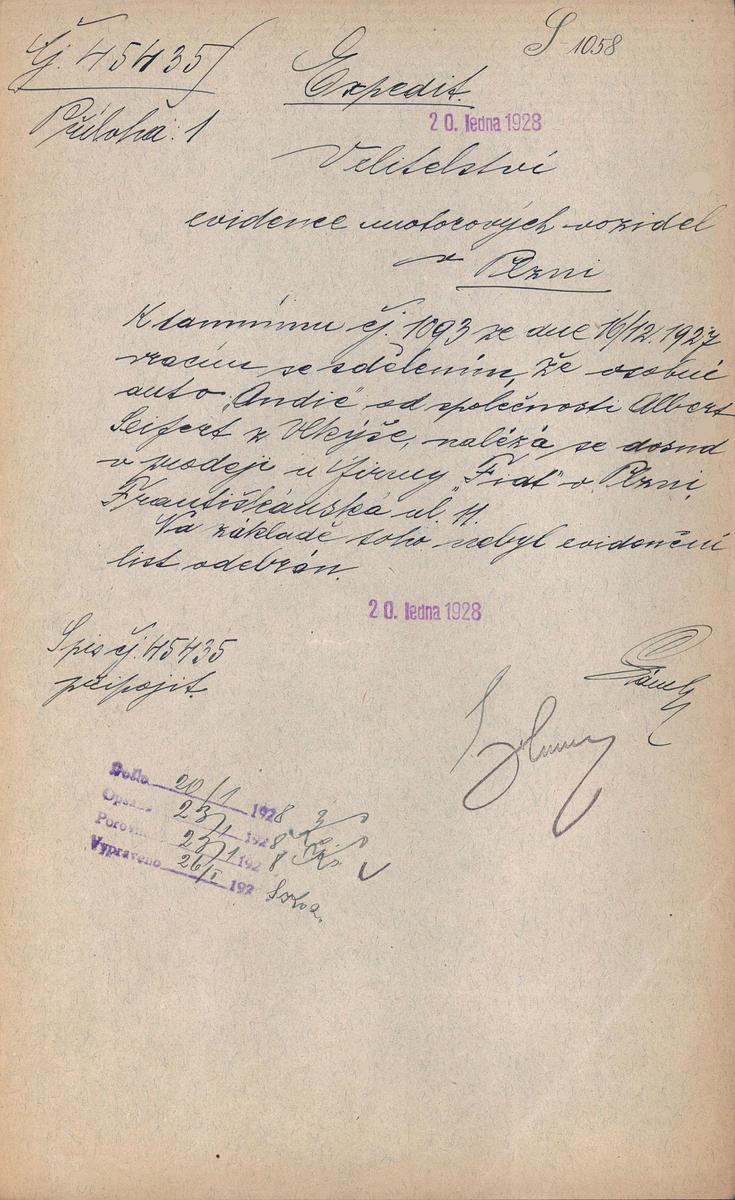 Čj. 45435/
S 1058
Expedit.
Příloha: 1
20. ledna 1928
Velitelství
evidence motorových vozidel
v Plzni
K tamnímu čj. 1093 ze dne 16/12. 1927
vracím se sdělením, že osobní
auto „Andić“ od společnosti Albert
Seifert z Vlkýše, nalézá se dosud
v prodeji u firmy „Fiat“ v Plzni,
Františkánská ul. 11.
Na základě toho nebyl evidenční
list odebrán.
20. ledna 1928
Spis čj. 45435
připojit.
Došlo 20/1 1928
Opsáno 23/1 1928
Porovn. 23/1 1928
Vypraveno 26/I 192